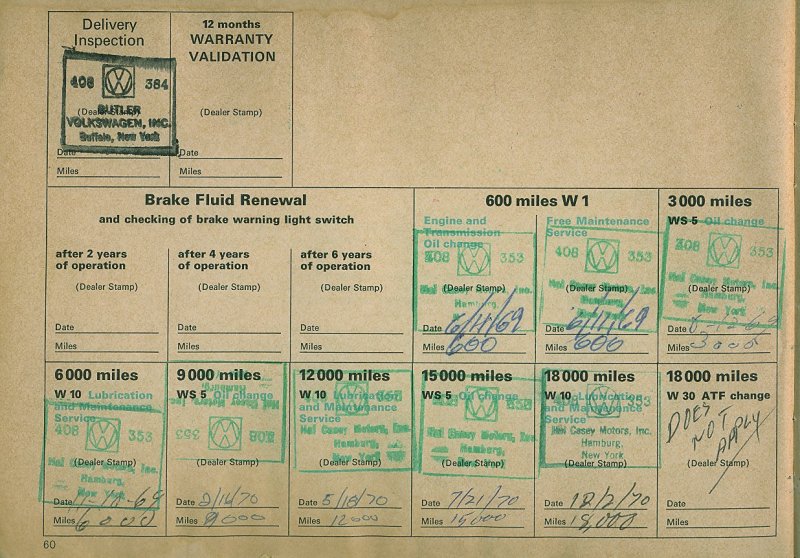 Delivery
Inspection
408 384
(Dealer Stamp)
BUTLER
VOLKSWAGEN, INC.
Buffalo, New York
Date
Miles
12 months
WARRANTY
VALIDATION
(Dealer Stamp)
Date
Miles
Brake Fluid Renewal
and checking of brake warning light switch
after 2 years
of operation
(Dealer Stamp)
Date
Miles
after 4 years
of operation
(Dealer Stamp)
Date
Miles
after 6 years
of operation
(Dealer Stamp)
Date
Miles
600 miles W 1
Engine and
Transmission
Oil change
408 353
Hal Casey Motors, Inc.
(Dealer Stamp)
Hamburg,
New York
Date 6/11/69
Miles 600
Free Maintenance
Service
408 353
Hal Casey Motors, Inc.
(Dealer Stamp)
Hamburg,
New York
Date 6/11/69
Miles 600
3 000 miles
WS 5 Oil change
408 353
Hal Casey Motors, Inc.
(Dealer Stamp)
Hamburg,
New York
Date
Miles 3000
6 000 miles
W 10 Lubrication
and Maintenance
Service
408 353
Hal Casey Motors, Inc.
(Dealer Stamp)
Hamburg,
New York
Date 11-11-69
Miles 6000
9 000 miles
WS 5 Oil change
Hamburg,
Hal Casey Motors, Inc.
408 353
(Dealer Stamp)
Date 2/14/70
Miles 9000
12 000 miles
W 10 Lubrication
and Maintenance
Service
Hal Casey Motors, Inc.
Hamburg,
New York
(Dealer Stamp)
Date 5/18/70
Miles 12000
15 000 miles
WS 5 Oil change
Hal Casey Motors, Inc.
Hamburg,
New York
(Dealer Stamp)
Date 7/21/70
Miles 15000
18 000 miles
W 10 Lubrication
and Maintenance
Service
408 353
Hal Casey Motors, Inc.
Hamburg,
New York
(Dealer Stamp)
Date 12/2/70
Miles 18,000
18 000 miles
W 30 ATF change
DOES
NOT
APPLY
(Dealer Stamp)
Date
Miles
60